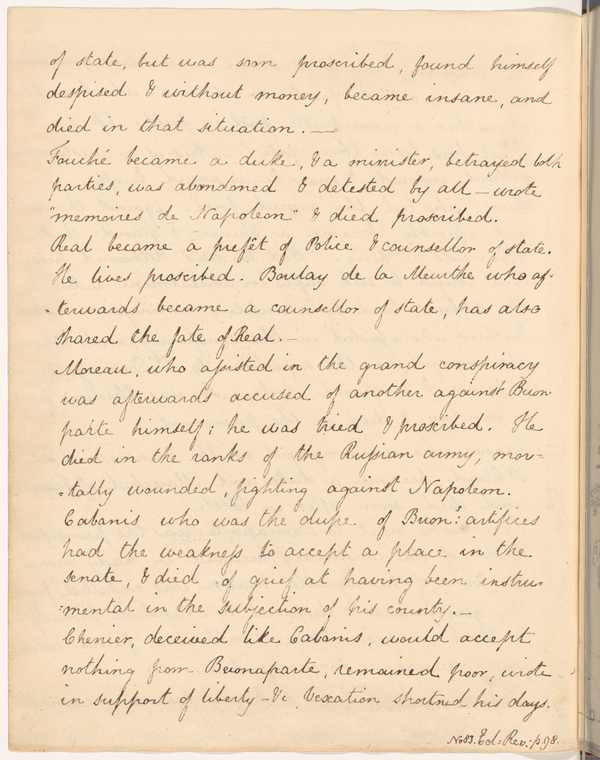 of state, but was soon proscribed, found himself
despised & without money, became insane, and
died in that situation. —
Fouché became a duke, & a minister, betrayed both
parties, was abandoned & detested by all – wrote
"memoires de Napoleon" & died proscribed.
Real became a prefêt of Police & counsellor of state.
He lives proscribed. Boulay de la Meurthe who af-
-terwards became a counsellor of state, has also
shared the fate of Real. –
Moreau, who assisted in the grand conspiracy
was afterwards accused of another against Buon-
parte himself: he was tried & proscribed. He
died in the ranks of the Russian army, mor-
-tally wounded, fighting against Napoleon.
Cabanis who was the dupe of Buon's: artifices
had the weakness to accept a place in the
senate, & died of grief at having been instru-
-mental in the subjection of his county. –
Chenier, deceived like Cabanis, would accept
nothing from Buonaparte, remained poor, wrote
in support of liberty – &c Vexation shortned his days.
No 83. Ed. Rev: p. 98.